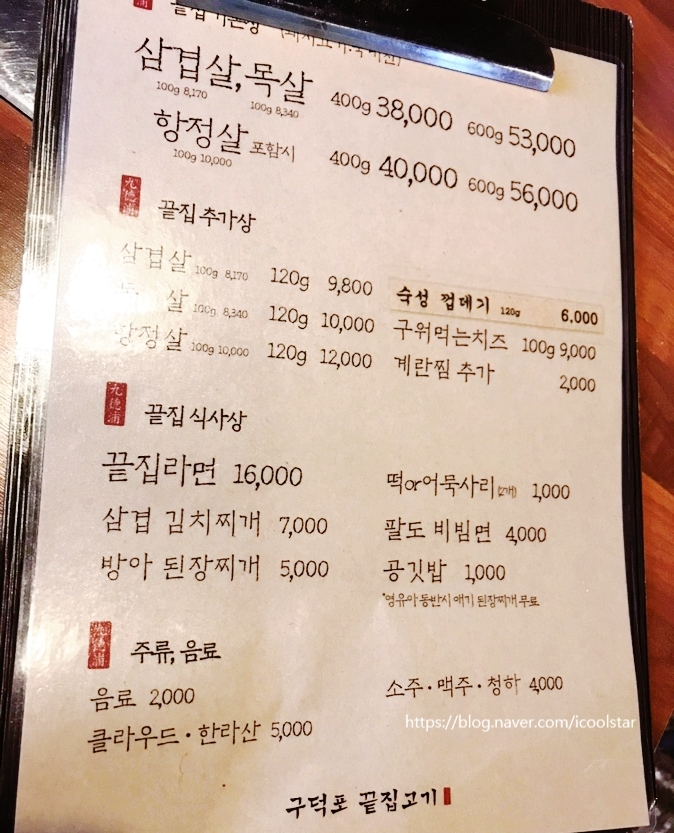 끝집 기본상 (돼지고기:국내산)
삼겹살, 목살 400g 38,000 600g 53,000
100g 8,170 100g 8,340
항정살 포함시 400g 40,000 600g 56,000
100g 10,000
九德浦 끝집 추가상
삼겹살 100g 8,170 120g 9,800
살 100g 8,340 120g 10,000
항정살 100g 10,000 120g 12,000
숙성 껍데기 120g 6,000
구워먹는치즈 100g 9,000
계란찜 추가 2,000
九德浦 끝집 식사상
끝집라면 16,000
삼겹 김치찌개 7,000
방아 된장찌개 5,000
떡or어묵사리 (2개) 1,000
팔도 비빔면 4,000
공깃밥 1,000
*영유아 동반시 애기 된장찌개 무료
九德浦 주류, 음료
음료 2,000
클라우드·한라산 5,000
소주·맥주·청하 4,000
https://blog.naver.com/icoolstar
구덕포 끝집고기